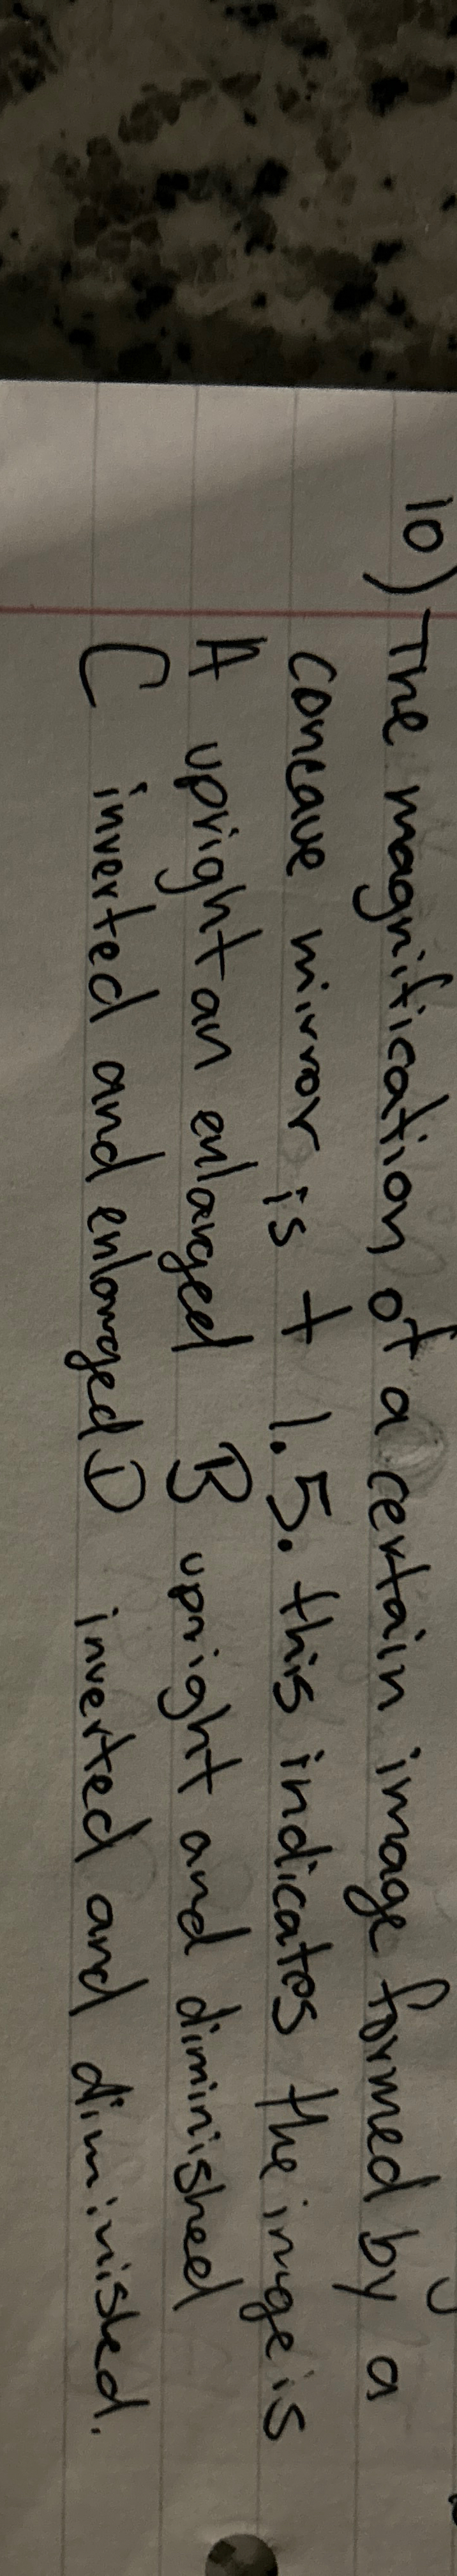 10) The magnification of a certain image formed by a
concave mirror is + 1.5. this indicates the imge is
A upright an enlarged B upright and diminished
C inverted and enlarged D inverted and diminished.